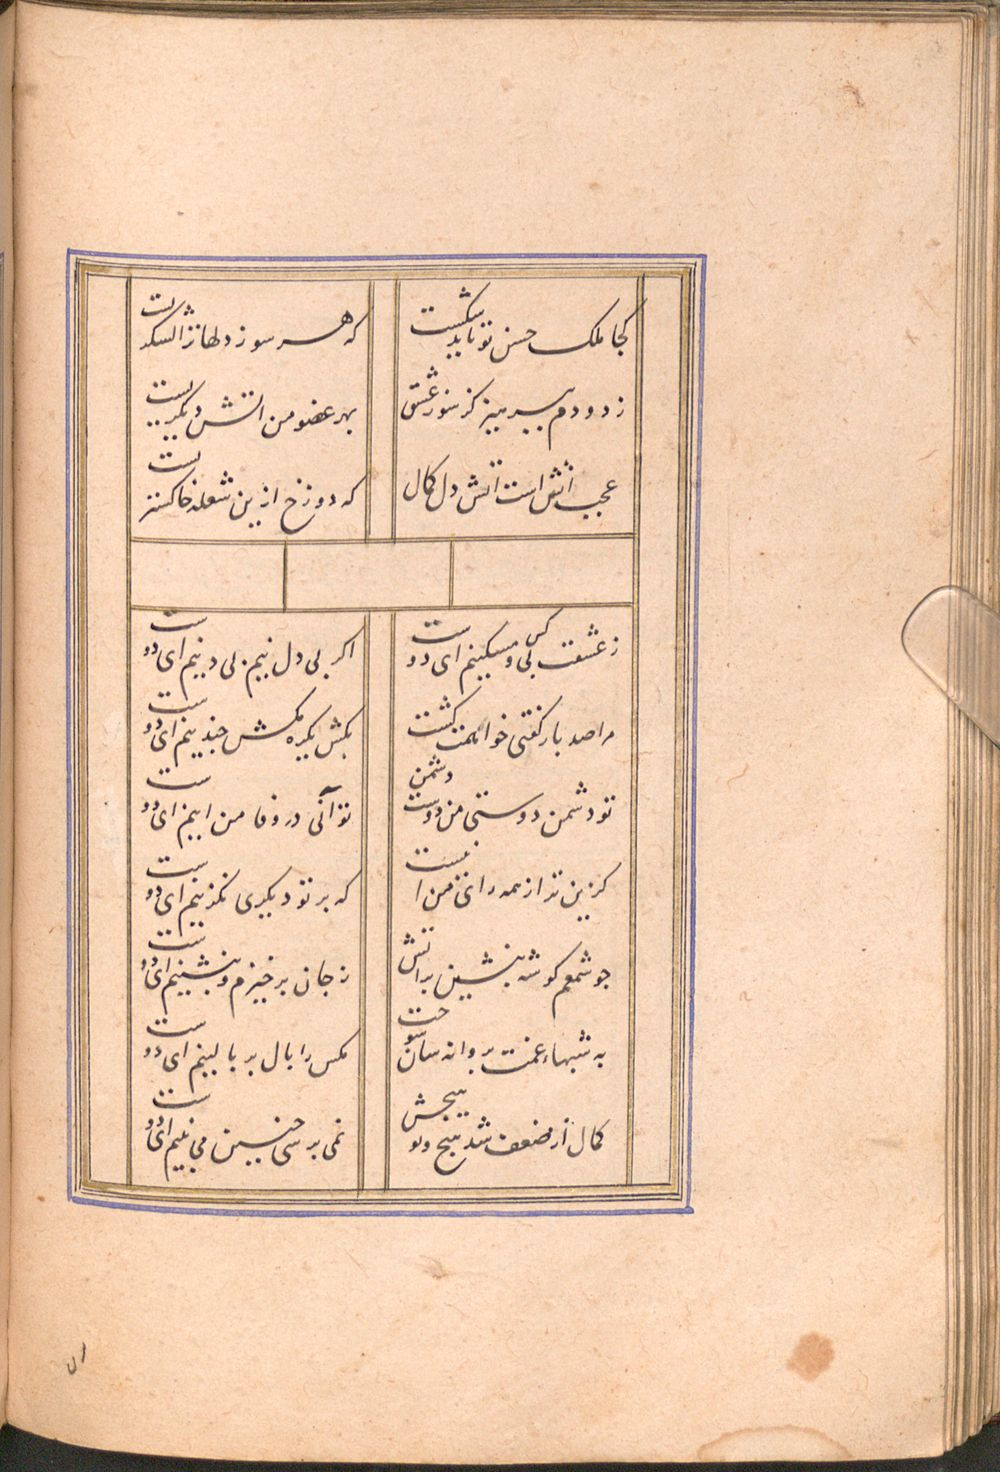 کجا ملک حسن تو یابد شکست
که هر سو ز دلها ترا لشکریست
ز دود دم بپرهیز کز سوز عشق
بهر عضو من اتش دیکریست
عجب اتش است اتش دل کمال
که دوزخ ازین شعله خاکستریست
ز عشقت بی کس و مسکینم ای دوست
اکر بی دل نیم بی دینم ای دوست
مرا صد بار کفتی خواهمت کشت
بکش یکره مکش چندینم ای دوست
تو دشمن دوستی من دوست دشمن
تو آنی در وفا من اینم ای دوست
کزین تر از همه رانی من نیست
که بر تو دیکری نکزینم ای دوست
چو شمعم کوشه بنشین بر اتش
ز جان برخیزم و بنشینم ای دوست
به شبهاء غمت پروانه سان سوخت
مکس را بال بر بالینم ای دوست
کمال از ضعف شد هیچ و تو هیچش
نمی پرسی چنین می بینم ای دوست